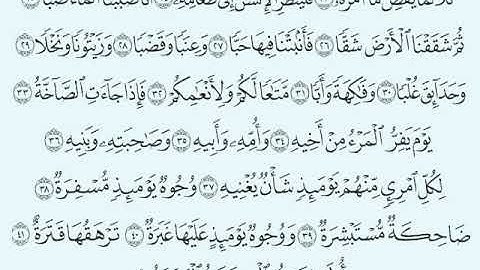 كَلَّا لَمَّا يَقْضِ مَا أَمَرَهُۥ فَلْيَنظُرِ ٱلْإِنسَٰنُ إِلَىٰ طَعَامِهِۦٓ أَنَّا صَبَبْنَا ٱلْمَآءَ صَبًّا
ثُمَّ شَقَقْنَا ٱلْأَرْضَ شَقًّا ٢٦ فَأَنۢبَتْنَا فِيهَا حَبًّا ٢٧ وَعِنَبًا وَقَضْبًا ٢٨ وَزَيْتُونًا وَنَخْلًا ٢٩
وَحَدَآئِقَ غُلْبًا ٣٠ وَفَٰكِهَةً وَأَبًّا ٣١ مَّتَٰعًا لَّكُمْ وَلِأَنْعَٰمِكُمْ ٣٢ فَإِذَا جَآءَتِ ٱلصَّآخَّةُ ٣٣
يَوْمَ يَفِرُّ ٱلْمَرْءُ مِنْ أَخِيهِ ٣٤ وَأُمِّهِۦ وَأَبِيهِ ٣٥ وَصَٰحِبَتِهِۦ وَبَنِيهِ ٣٦
لِكُلِّ ٱمْرِئٍ مِّنْهُمْ يَوْمَئِذٍ شَأْنٌ يُغْنِيهِ ٣٧ وُجُوهٌ يَوْمَئِذٍ مُّسْفِرَةٌ ٣٨
ضَاحِكَةٌ مُّسْتَبْشِرَةٌ ٣٩ وَوُجُوهٌ يَوْمَئِذٍ عَلَيْهَا غَبَرَةٌ ٤٠ تَرْهَقُهَا قَتَرَةٌ ٤١